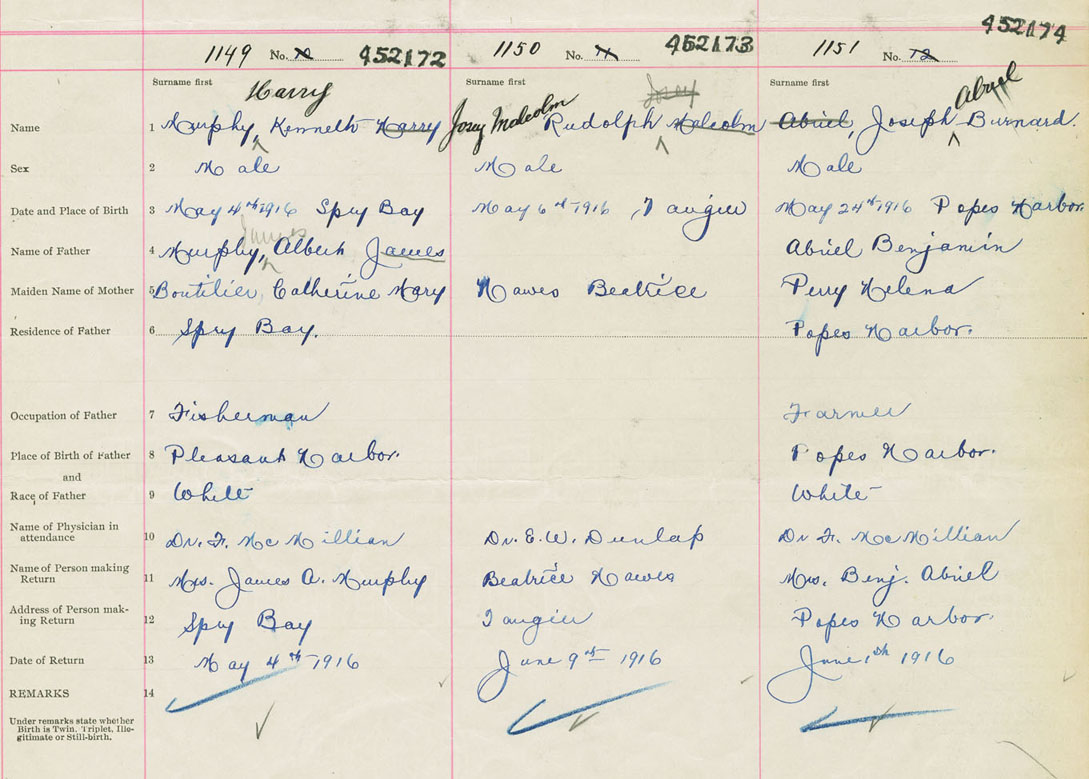 452174
1149 No. 10 452172 1150 No. 11 452173 1151 No. 12
Surname first Surname first Surname first
Harry Josey Abriel
Name 1 Murphy, Kenneth Harry Josey Malcolm Rudolph Malcolm Abriel, Joseph Burnard.
Sex 2 Male Male Male
Date and Place of Birth 3 May 4th 1916 Spry Bay May 6th 1916, Tangier May 24th 1916 Popes Harbor.
James
Name of Father 4 Murphy, Albert James Abriel Benjamin
Maiden Name of Mother 5 Boutilier, Catherine Mary Hawes Beatrice Perry Helena
Residence of Father 6 Spry Bay. Popes Harbor.
Occupation of Father 7 Fisherman Farmer
Place of Birth of Father 8 Pleasant Harbor. Popes Harbor.
and
Race of Father 9 White White
Name of Physician in
attendance 10 Dr. F. McMillian Dr. E. W. Dunlap Dr F. McMillian
Name of Person making
Return 11 Mrs. James A. Murphy Beatrice Hawes Mrs. Benj. Abriel
Address of Person mak-
ing Return 12 Spry Bay Tangier Popes Harbor.
Date of Return 13 May 4th 1916 June 9th 1916 June 1th 1916
REMARKS 14
Under remarks state whether
Birth is Twin, Triplet, Ille-
gitimate or Still-birth.